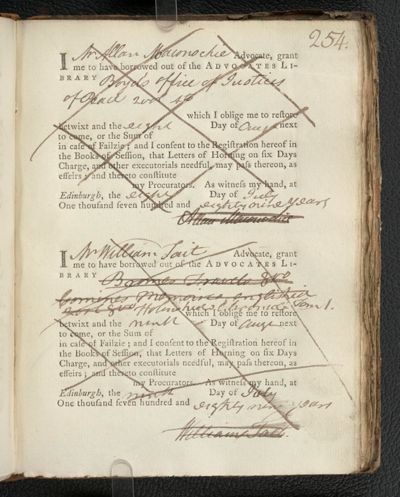 254.
I Mr Allan Maconochie Advocate, grant
me to have borrowed out of the ADVOCATES LI-
BRARY Boyds office of Justices
of Peace 2 vol. 4to
which I oblige me to restore
betwixt and the eight Day of Augt next
to come, or the Sum of
in case of Failzie; and I consent to the Registration hereof in
the Books of Session, that Letters of Horning on six Days
Charge, and other executorials needful, may pass thereon, as
effeirs; and thereto constitute
my Procurators. As witness my hand, at
Edinburgh, the eight Day of July
One thousand seven hundred and eighty nine years
Allan Maconochie
I Mr William Tait Advocate, grant
me to have borrowed out of the ADVOCATES LI-
BRARY Travels
Comines Memoires
Tom 1.
which I oblige me to restore
betwixt and the ninth Day of Augt next
to come, or the Sum of
in case of Failzie; and I consent to the Registration hereof in
the Books of Session, that Letters of Horning on six Days
Charge, and other executorials needful, may pass thereon, as
effeirs; and thereto constitute
my Procurators. As witness my hand, at
Edinburgh, the ninth Day of July
One thousand seven hundred and eighty nine years
William Tait